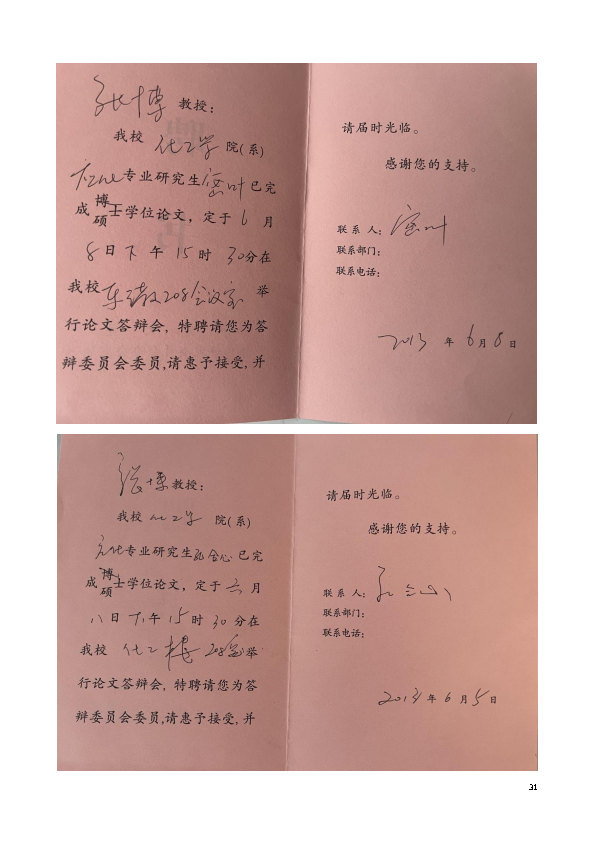 张博 教授：
我校 化工学 院(系)
专业研究生 密叶 已完
成 博 硕 士学位论文，定于 6 月
8 日 下 午 15 时 30 分在
我校 208会议室 举
行论文答辩会，特聘请您为答
辩委员会委员,请惠予接受,并
请届时光临。
感谢您的支持。
联系人： 密叶
联系部门：
联系电话：
2013 年 6 月 8 日
张博 教授：
我校 化工学 院(系)
应化 专业研究生 会心 已完
成 博 硕 士学位论文，定于 六 月
八 日 下 午 15 时 30 分在
我校 化工楼 208室 举
行论文答辩会，特聘请您为答
辩委员会委员,请惠予接受,并
请届时光临。
感谢您的支持。
联系人：
联系部门：
联系电话：
2013 年 6 月 5 日
31